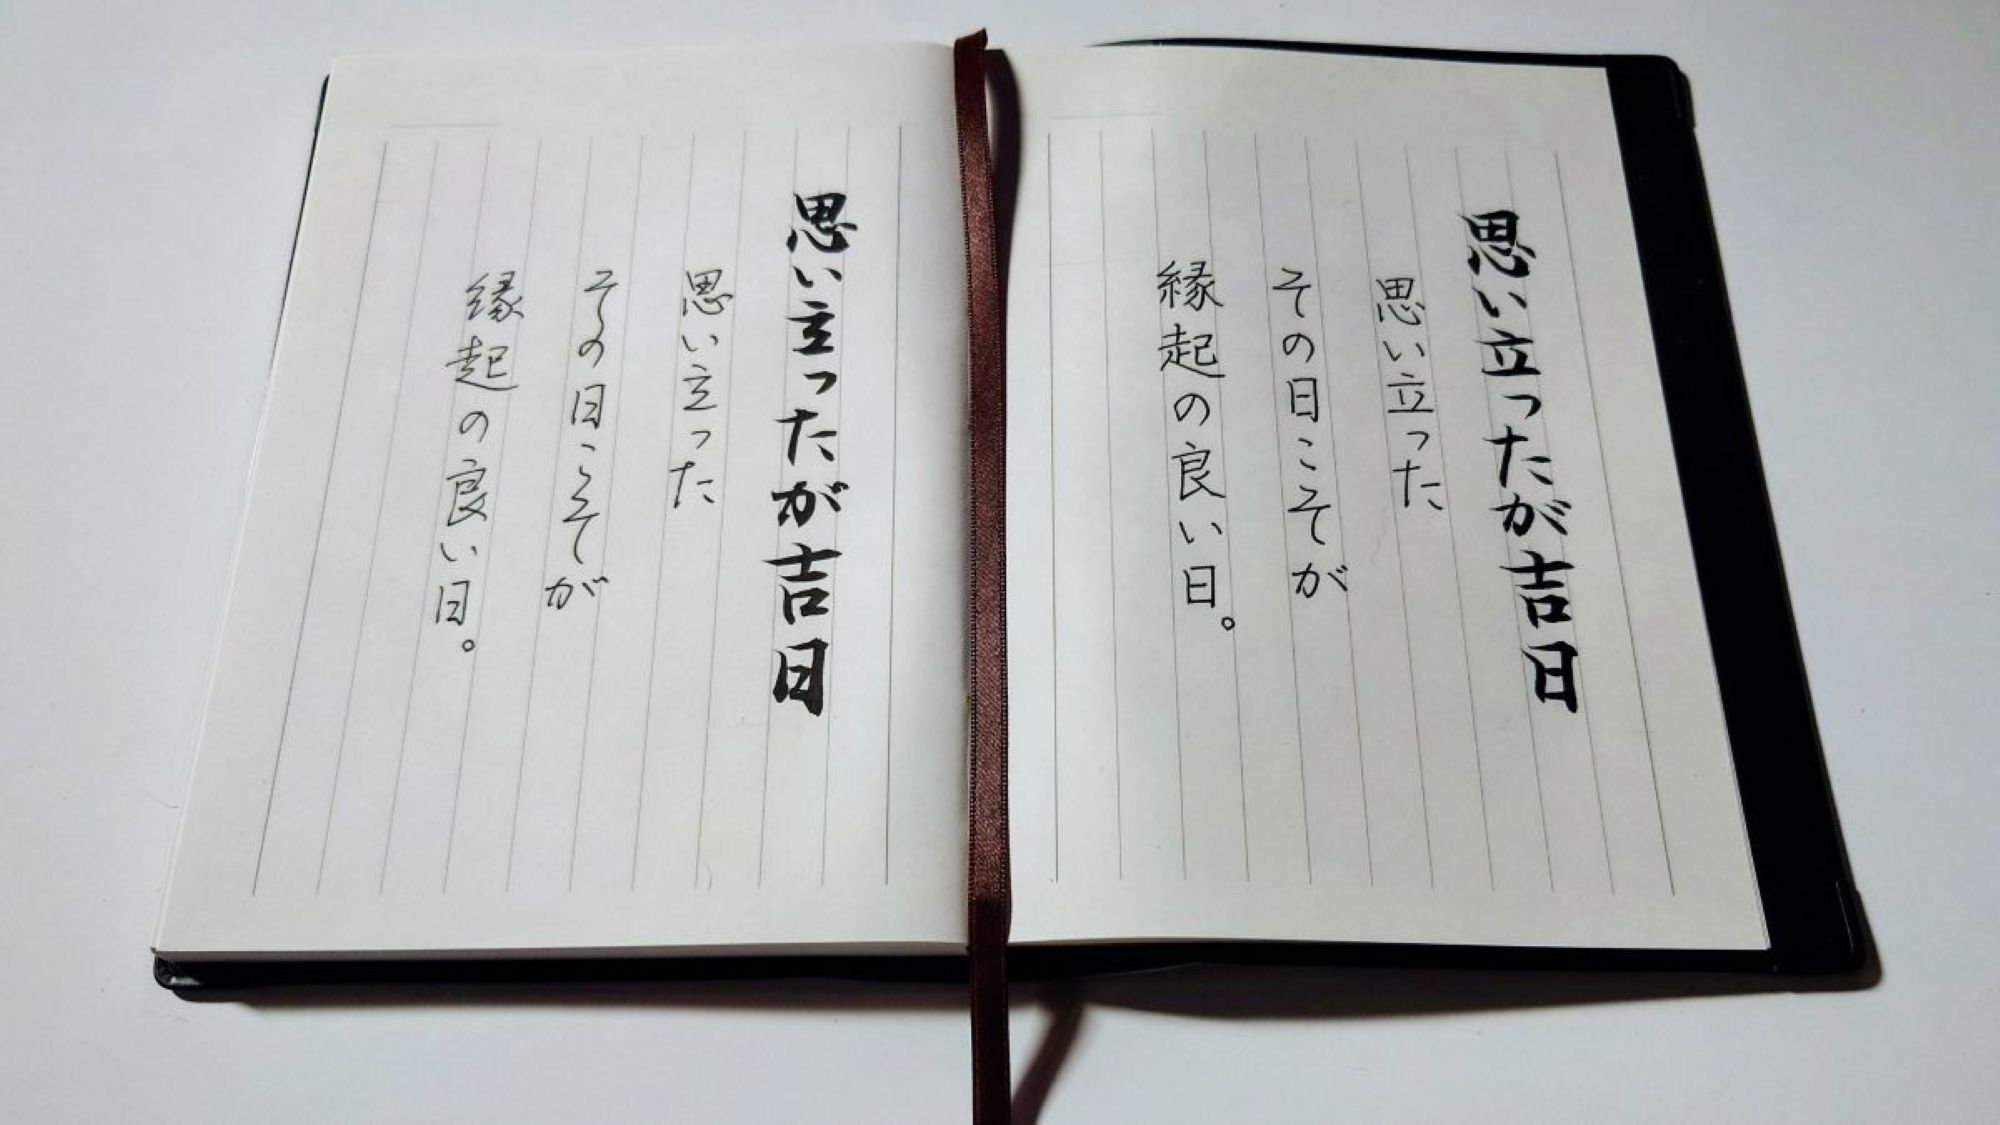 思い立ったが吉日
思い立った
その日こそが
縁起の良い日。
思い立ったが吉日
思い立った
その日こそが
縁起の良い日。